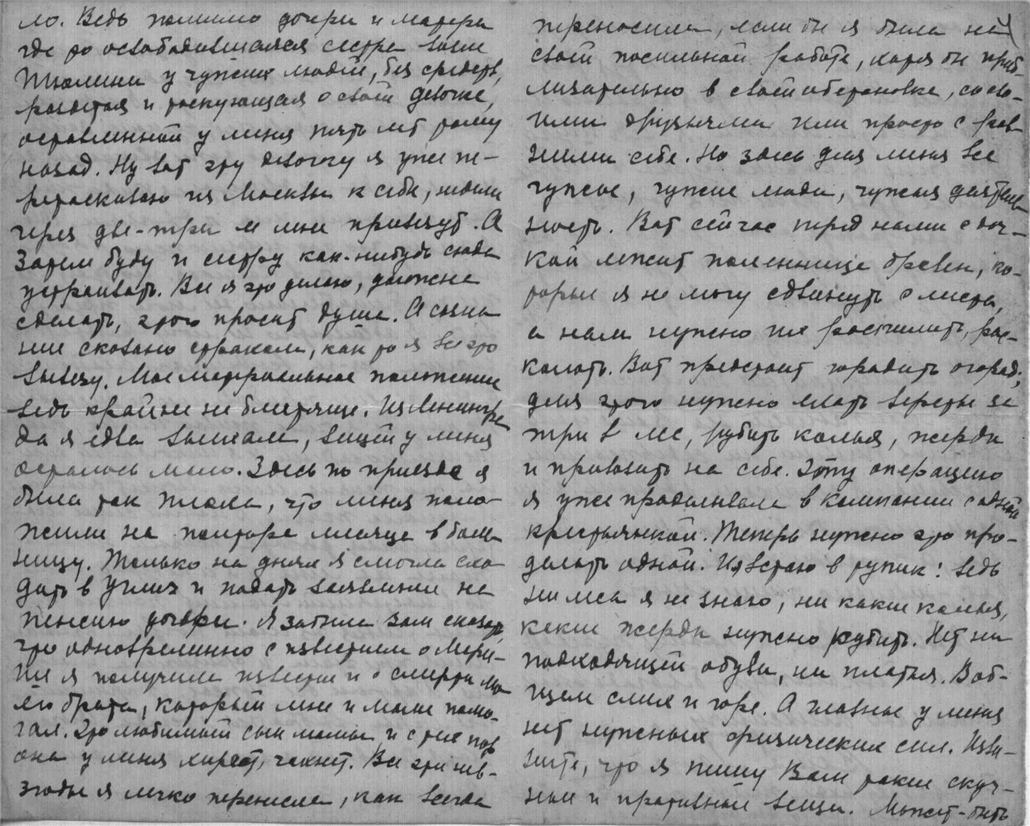 ло. Ведь помимо дочери и матери
где то освободившаяся сестра возле
Тюмени у чужих людей, без средств,
разутая и тоскующая о своей девочке,
оставленной у меня пять лет тому
назад. Ну вот эту девочку я уже пе-
ретаскиваю из Москвы к себе, может
через дня два-три ее мне привезут. А
затем буду и сестру как-нибудь сюда
устраивать. Все я это делаю, должна
сделать, этого просит душа. А созна
ние сковано страхом, как то я все это
вывезу. Мое материальное положение
ведь крайне не блестяще. Из Ленингра
да я едва выехала, вещей у меня
осталось мало. Здесь по приезде я
была так плоха, что меня поло-
жили на полтора месяца в боль
ницу. Только на днях я смогла схо
дить в Углич и подать заявление на
пенсию дочери. Я забыла Вам сказать,
что одновременно с известием о Мари-
не я получила известие и о смерти мо
его брата, который мне и маме помо-
гал. Это любимый сын мамы и с тех пор
она у меня хиреет, чахнет. Все эти нев-
згоды я легко перенесла, как всегда
переносила, если бы я была на
своей посильной работе, хотя бы приб-
лизительно в своей обстановке, со сво-
ими друзьями или просто с рав-
ными себе. Но здесь для меня все
чужое, чужие люди, чужая деятель
ность. Вот сейчас перед нами с доч-
кой лежит поленница бревен, ко-
торые я не могу сдвинуть с места,
а нам нужно их распилить, рас-
колоть. Вот предстоит городить огород;
для этого нужно ехать версты за
три в лес, рубить колья, жерди
и привозить на себе. Эту операцию
я уже проделывала в компании с одной
крестьянкой. Теперь нужно это про-
делать одной. И я встаю в тупик: ведь
ни леса я не знаю, ни какие колья,
какие жерди нужно рубить. Нет ни
подходящей обуви, ни платья. Воб-
щем смех и горе. А главное у меня
нет нужных физических сил. Изви-
ните, что я пишу Вам такие скуч-
ные и противные вещи. Может-быть